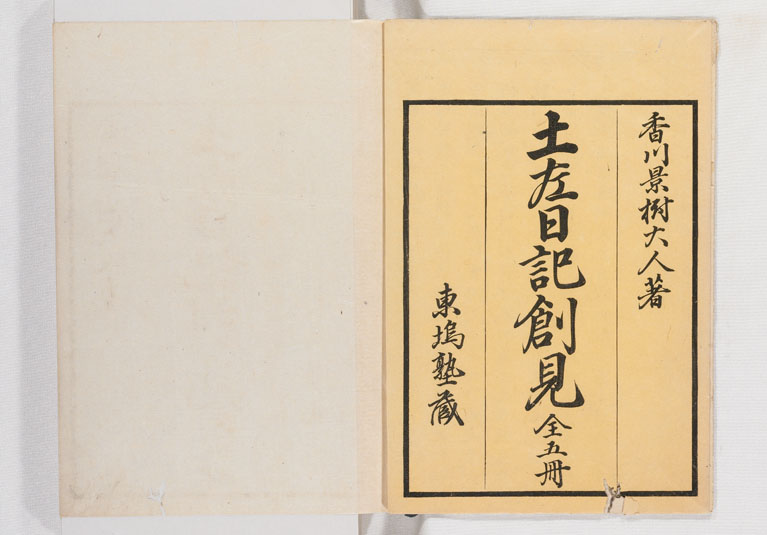 香川景樹大人著
土左日記創見全五冊
東塢塾蔵